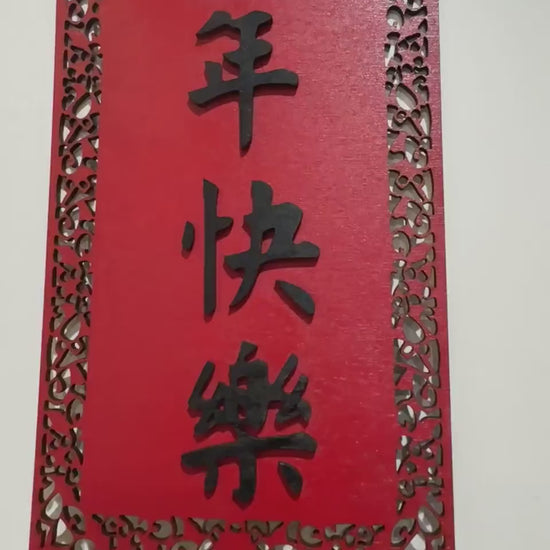 年快樂